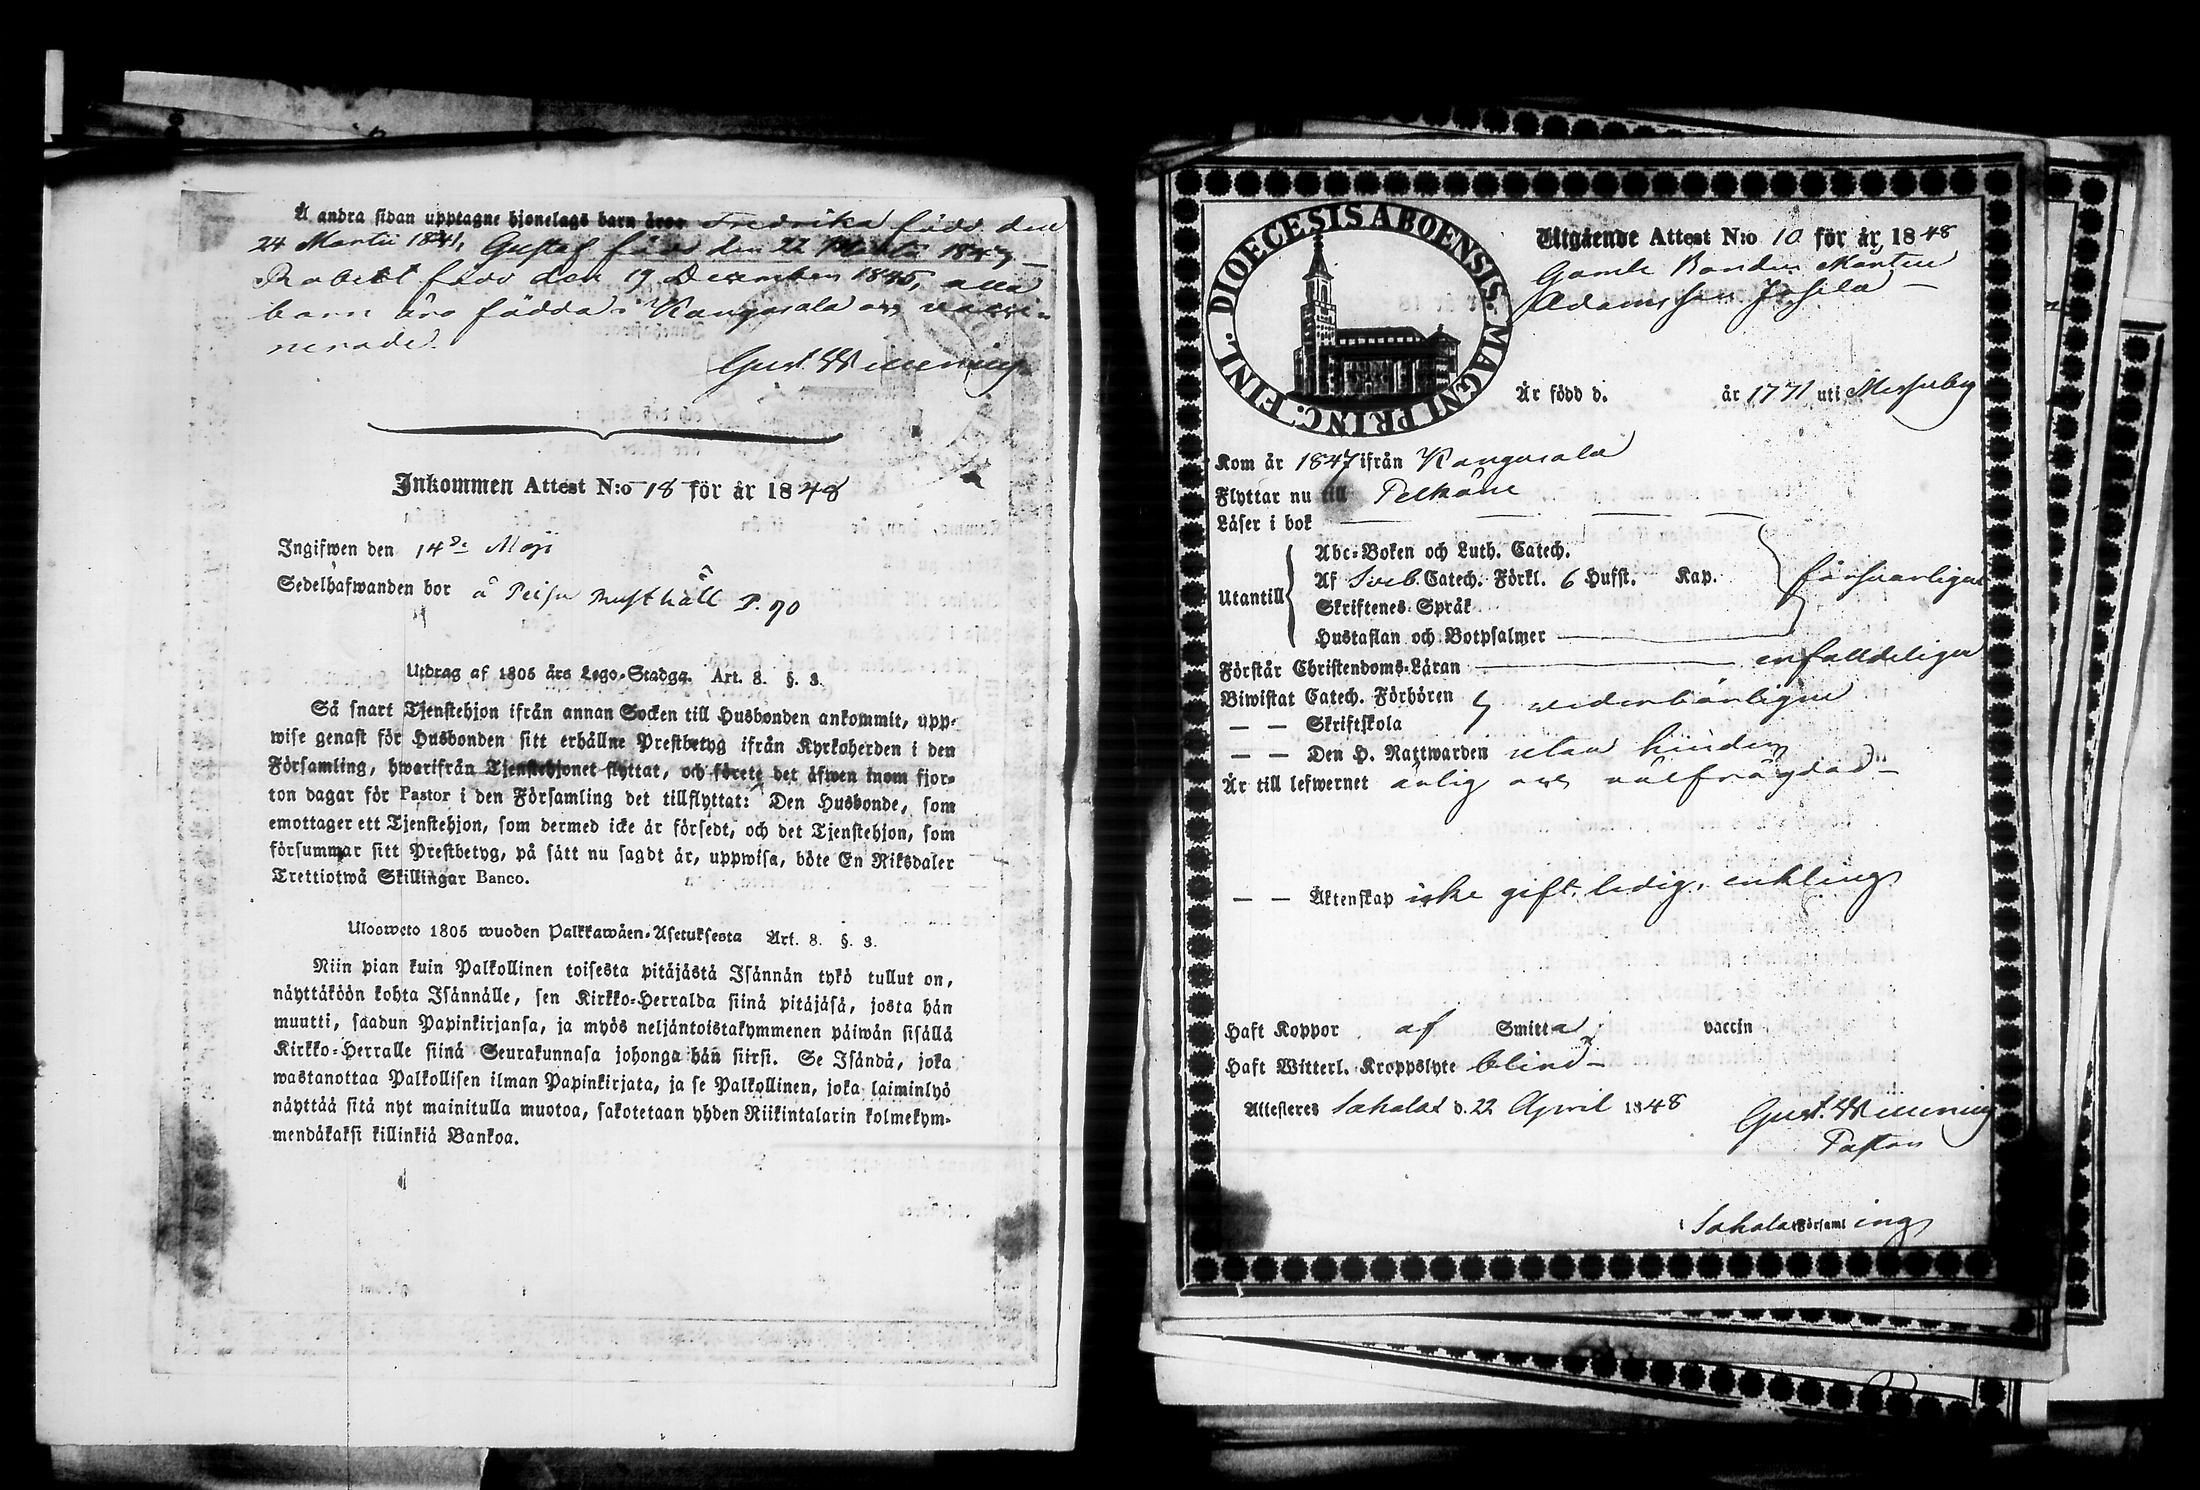 Å andra sidan upptagne hjonelags barn äro: Fredrika född den
24 Martii 1841, Gustaf född den 22 Martii 1843
Robert född den 19 December 1845, alla
barn äro födda i Kangasala och vacci-
nerade.
Gust. Wemming
Inkommen Attest N:o 18 för år 1848
Ingifwen den 14de Maji
Sedelhafwanden bor å Peisu rusthåll P. 90
Utdrag af 1805 års Lego-Stadga. Art. 8. §. 3.
Så snart Tjenstehjon ifrån annan Socken till Husbonden ankommit, upp-
wise genast för Husbonden sitt erhållne Prestbetyg ifrån Kyrkoherden i den
Församling, hwarifrån Tjenstehjonet flyttat, och förete det äfwen inom fjor-
ton dagar för Pastor i den Församling det tillflyttat: Den Husbonde, som
emottager ett Tjenstehjon, som dermed icke är försedt, och det Tjenstehjon, som
försummar sitt Prestbetyg, på sätt nu sagdt är, uppwisa, böte En Riksdaler
Trettiotwå Skillingar Banco.
Ulosweto 1805 wuoden Palkkawäen-Asetuksesta Art. 8. §. 3.
Niin pian kuin Palkollinen toisesta pitäjästä Isännän tykö tullut on,
näyttäköön kohta Isännälle, sen Kirkko-Herralda siinä pitäjäsä, josta hän
muutti, saadun Papinkirjansa, ja myös neljäntoistakymmenen päiwän sisällä
Kirkko-Herralle siinä Seurakunnasa johonga hän siirsi. Se Isändä, joka
wastanottaa Palkollisen ilman Papinkirjata, ja se Palkollinen, joka laiminlyö
näyttää sitä nyt mainitulla muotoa, sakotetaan yhden Riikintalarin kolmekym-
mendäkaksi killinkiä Bankoa.
FINL. DIOECESIS ABOENSIS. MAGNI PRINC:
Utgående Attest N:o 10 för år 1848
Gamle Bonden Mårten
Adamsson
Är född d. år 1771 uti Messuby
Kom år 1847 ifrån Kangasala
Flyttar nu till Pelkäne
Läser i bok
Utantill
Abc-Boken och Luth. Catech.
Af Sveb. Catech. Förkl. 6 Hufst. Kap. försvarligen
Skriftenes Språk
Hustaflan och Botpsalmer
Förstår Christendoms-Läran enfalldeligen
Biwistat Catech. Förhören vederbörligen
— — Skriftskola
— — Den H. Nattwarden utan hinder
Är till lefwernet ärlig och välfrägdad
— — Äktenskap icke gift, ledig, enkling
Haft Koppor af Smitta vaccin
Haft Witterl. Kroppslyte blind
Attesteras Sahalax d. 22 April 1848
Gust. Wemming
Pastor
i Sahalax Församling